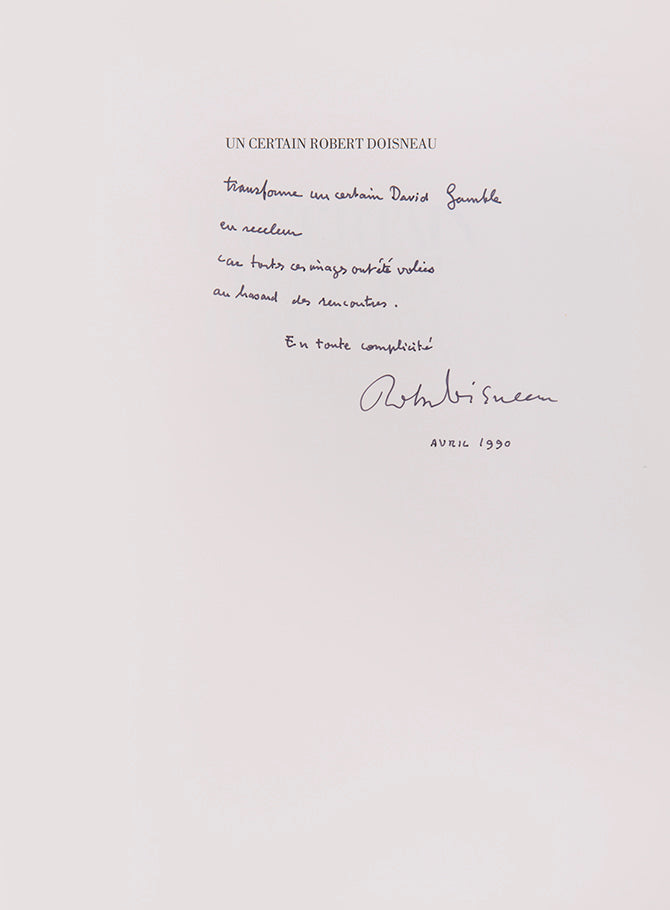 UN CERTAIN ROBERT DOISNEAU
transforme un certain David Gamble
en receleur
car toutes ces images ont été volées
au hasard des rencontres.
En toute complicité
Robert Doisneau
AVRIL 1990